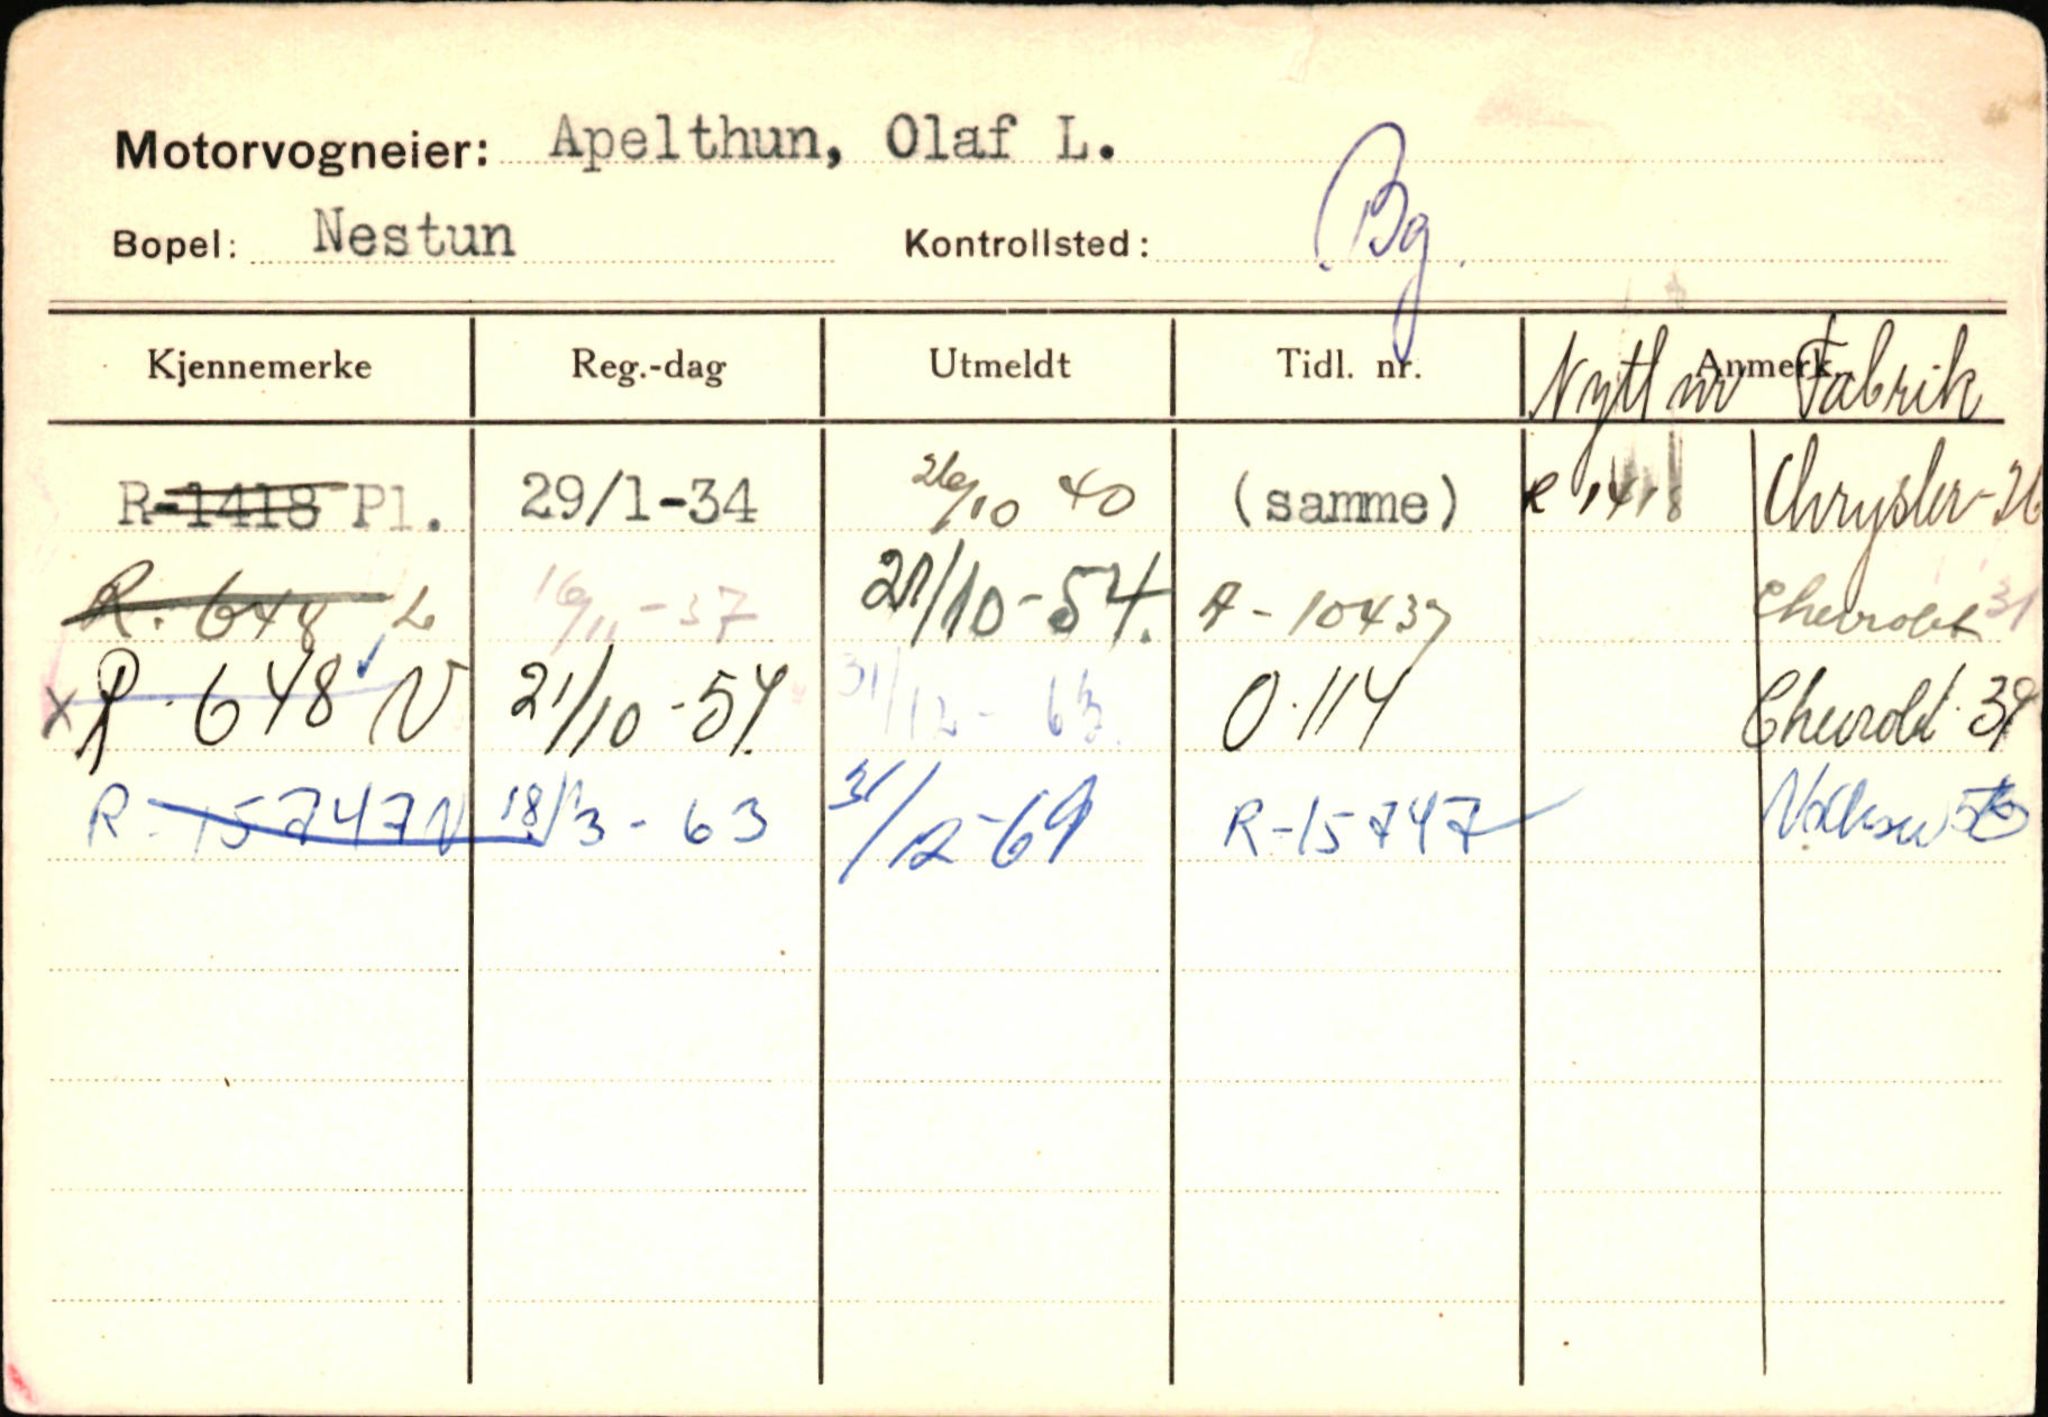 Motorvogneier: Apelthun, Olaf L.
Bopel: Nestun Kontrollsted: Bg.
Kjennemerke Reg.-dag Utmeldt Tidl. nr. Anmerk. Nytt nr Fabrik
R-1418 Pl. 29/1-34 26/10 40 (samme) R 1418 Chrysler-26
R. 648 L 16/11-37 21/10-54. A-10437 Chevrolet 31
x R. 648 V 21/10-54. 31/12-63. O.114 Chevrolet. 39
R-15747 V 18/3-63 31/12-69 R-15747 Volksw